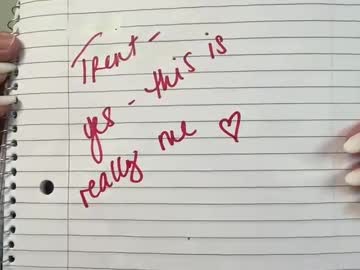 Trent-
yes - this is
really me ♡